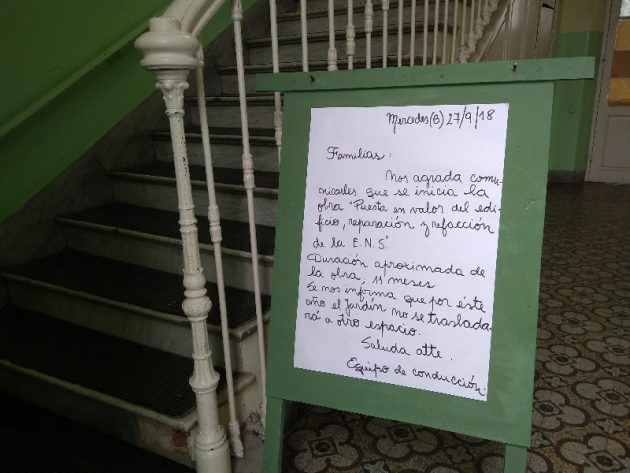 Mercedes (B) 27/9/18
Familias:
Nos agrada comu-
nicarles que se inicia la
obra "Puesta en valor del edi-
ficio, reparación y refacción
de la E.N.S."
Duración aproximada de
la obra, 11 meses
Se nos informa que por éste
año el Jardín no se traslada-
rá a otro espacio.
Saluda atte.
Equipo de conducción.